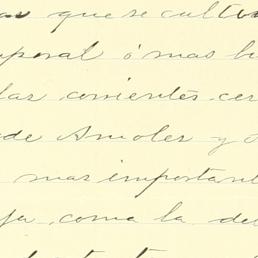 que se culti
poral ó mas b
las corrientes cer
de Amoles y
mas important
ja, como la de